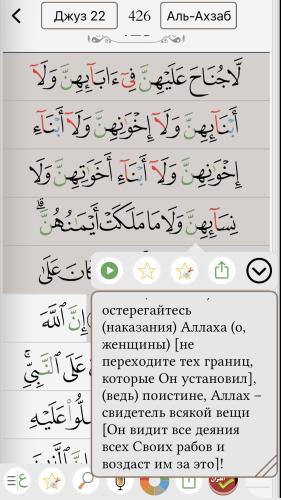 Джуз 22
426
Аль-Ахзаб
لَّا جُنَاحَ عَلَيْهِنَّ فِىٓ ءَابَآئِهِنَّ وَلَآ
أَبْنَآئِهِنَّ وَلَآ إِخْوَٰنِهِنَّ وَلَآ أَبْنَآءِ
إِخْوَٰنِهِنَّ وَلَآ أَبْنَآءِ أَخَوَٰتِهِنَّ وَلَا
نِسَآئِهِنَّ وَلَا مَا مَلَكَتْ أَيْمَـٰنُهُنَّ ۗ
كَانَ عَلَىٰ
إِنَّ ٱللَّهَ
عَلَى ٱلنَّبِىِّ ۚ
عَلَيْهِ
остерегайтесь
(наказания) Аллаха (о,
женщины) [не
переходите тех границ,
которые Он установил],
(ведь) поистине, Аллах –
свидетель всякой вещи
[Он видит все деяния
всех Своих рабов и
воздаст им за это]!